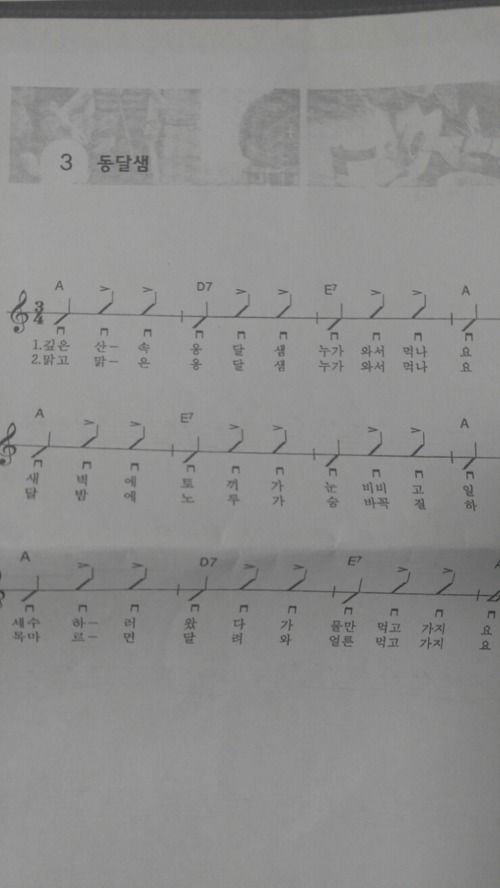 3 동달샘
A D7 E7 A
3/4
1.깊은 산- 속 옹 달 샘 누가 와서 먹나 요
2.맑고 맑- 은 옹 달 샘 누가 와서 먹나 요
A E7 A
새 벽 에 토 끼 가 눈 비비 고 일
달 밤 에 노 루 가 숨 바꼭 질 하
A D7 E7 A
세수 하- 러 왔 다 가 물만 먹고 가지 요
목마 르- 면 달 려 와 얼른 먹고 가지 요